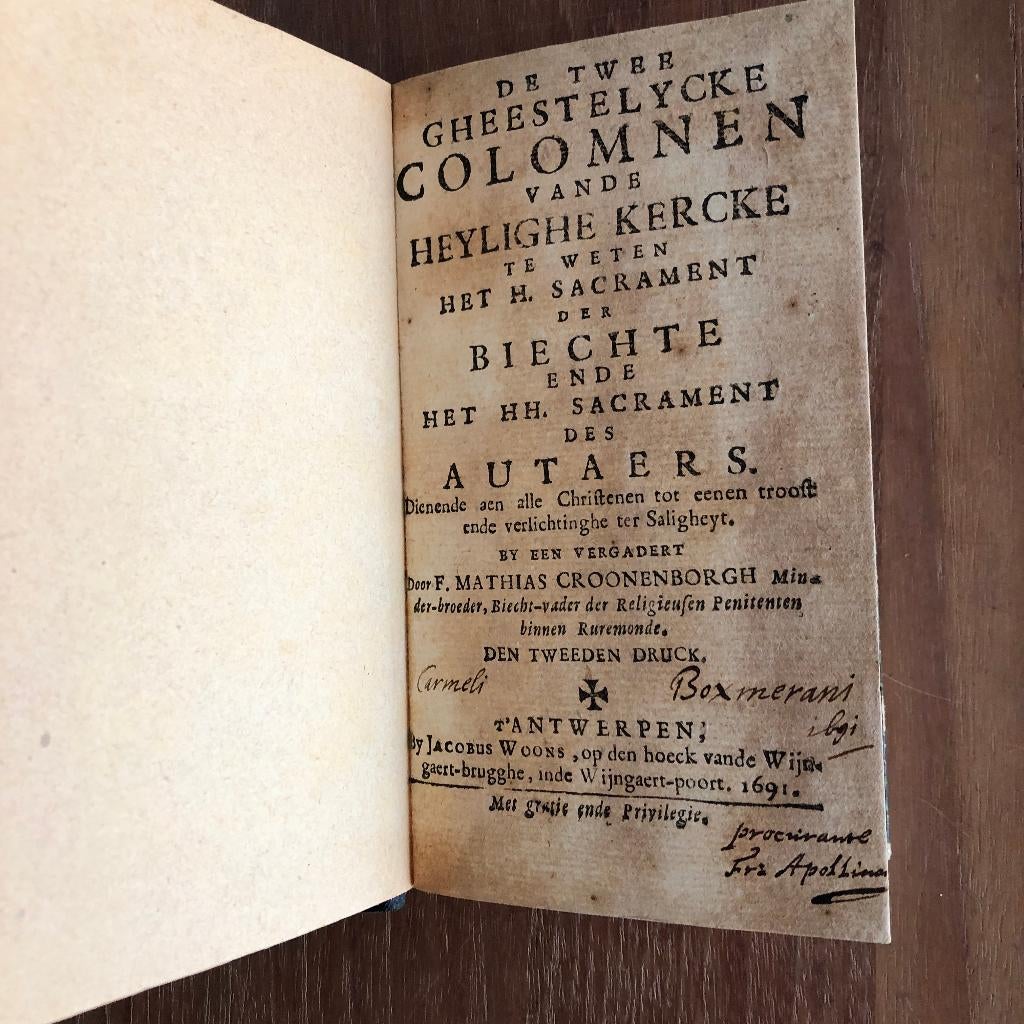 DE TWEE
GHEESTELYCKE
COLOMNEN
VANDE
HEYLIGHE KERCKE
TE WETEN
HET H. SACRAMENT
DER
BIECHTE
ENDE
HET HH. SACRAMENT
DES
AUTAERS.
Dienende aen alle Christenen tot eenen troost
ende verlichtinghe ter Saligheyt.
BY EEN VERGADERT
Door F. MATHIAS CROONENBORGH Min-
der-broeder, Biecht-vader der Religieusen Penitenten
binnen Ruremonde.
DEN TWEEDEN DRUCK.
Carmeli Boxmerani
T'ANTWERPEN,
By JACOBUS WOONS, op den hoeck vande Wijn-
gaert-brugghe, inde Wijngaert-poort. 1691.
Met gratie ende Privilegie.
procurante